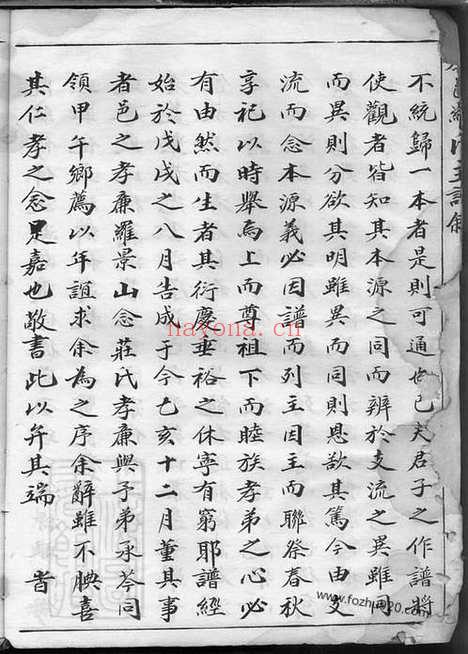 不統歸一本者是則可通也已夫君子之作譜將
使觀者皆知其本源之同而辨於支流之異雖同
而異則分欲其明雖異而同則恩欲其篤今由支
流而念本源義必因譜而列主因主而聯祭春秋
享祀以時舉焉上而尊祖下而睦族孝弟之心必
有由然而生者其衍慶垂裕之休寧有窮耶譜經
始於戊戌之八月告成于今乙亥十二月董其事
者邑之孝廉羅景山念莊氏孝廉與予弟承芩同
領甲午鄉薦以年誼求余為之序余辭雖不腆喜
其仁孝之念是嘉也敬書此以弁其端 旹
nayona.cn
www.fozhu920.com